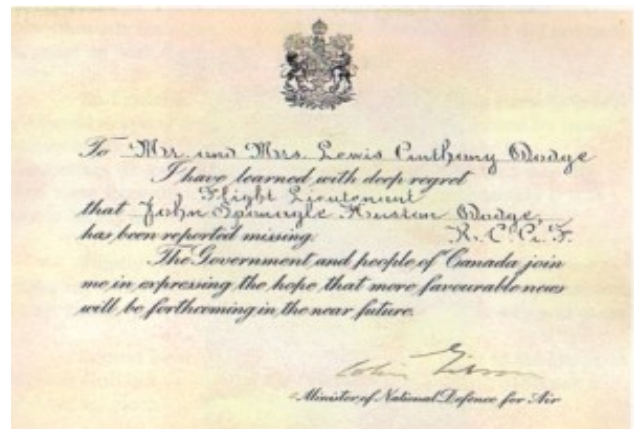 To Mr. and Mrs. Lewis Anthony Dodge
I have learned with deep regret
Flight Lieutenant
that John Sprangle Huston Dodge,
has been reported missing. R.C.A.F.
The Government and people of Canada join
me in expressing the hope that more favourable news
will be forthcoming in the near future.
Colin Gibson
Minister of National Defence for Air